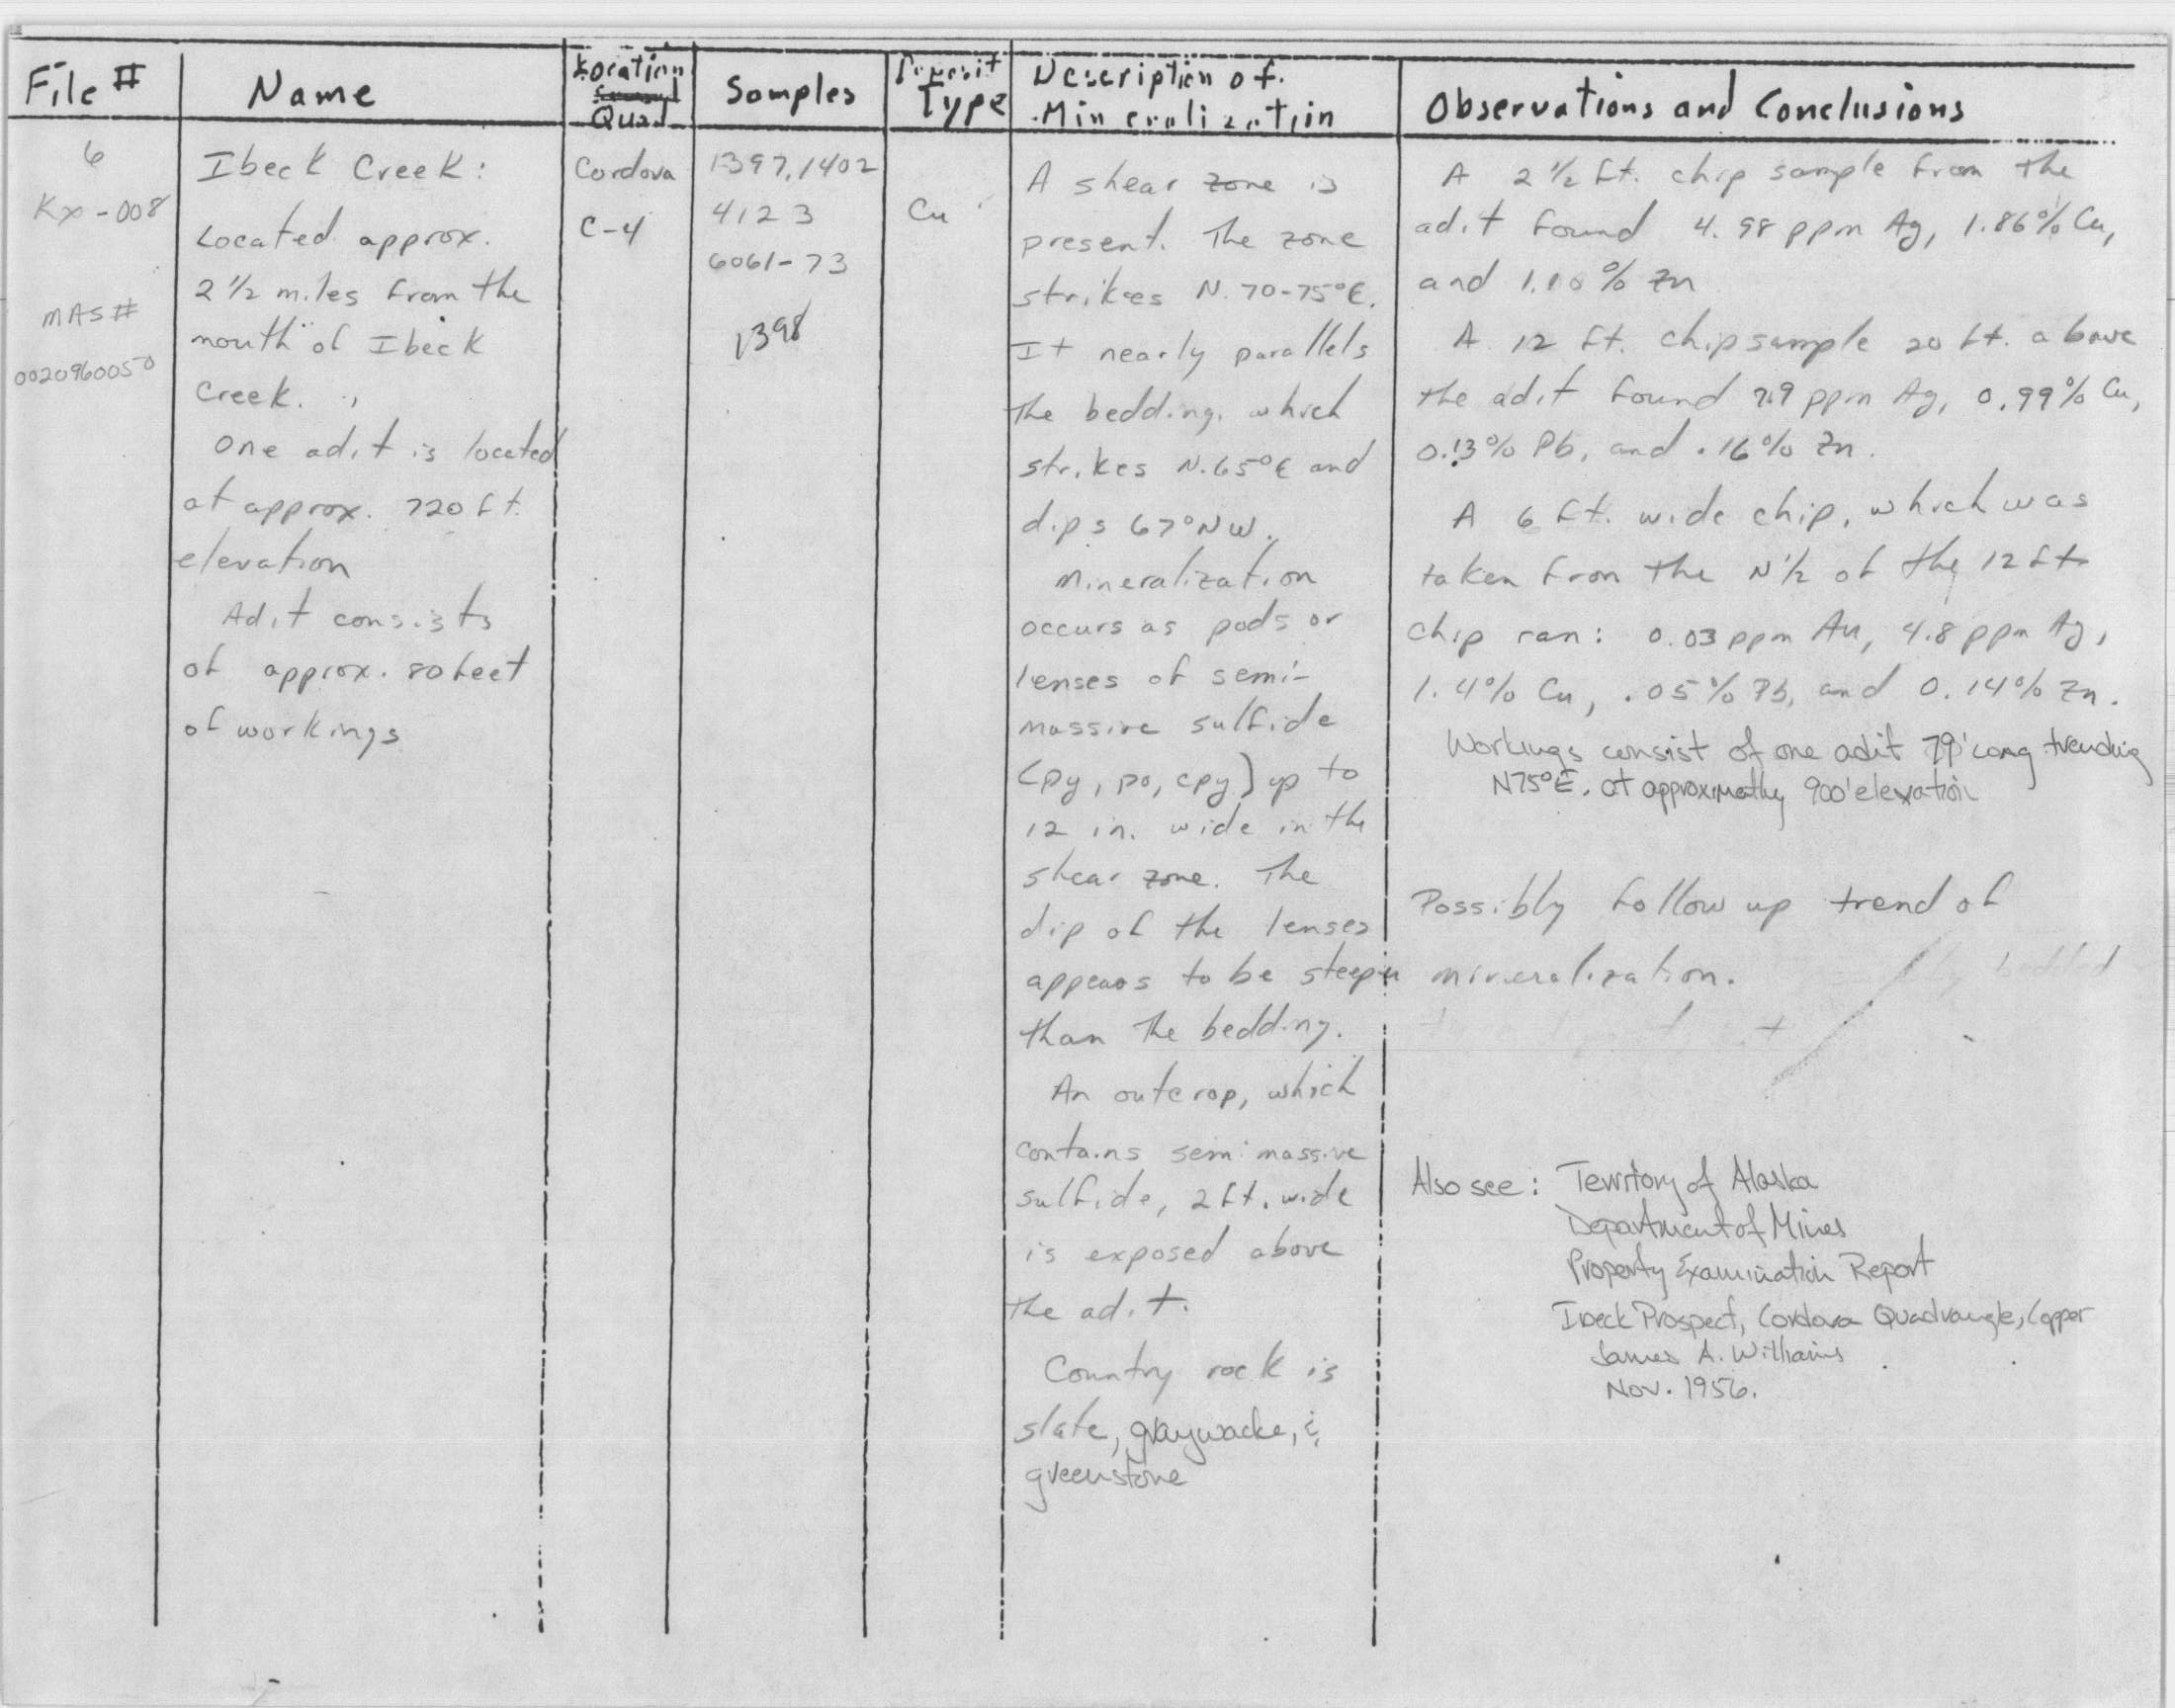 File #
Name
Location
Quad
Samples
Deposit
Type
Description of
Mineralization
Observations and Conclusions
6
Kx-008
MAS#
0020960050
Ibeck Creek:
Located approx.
2 1/2 miles from the
mouth of Ibeck
Creek.
One adit is located
at approx. 720 ft.
elevation
Adit consists
of approx. 80 feet
of workings
Cordova
C-4
1397, 1402
4123
6061-73
1398
Cu
A shear zone is
present. The zone
strikes N. 70-75°E.
It nearly parallels
the bedding, which
strikes N. 65°E and
dips 67°NW.
Mineralization
occurs as pods or
lenses of semi-
massive sulfide
(py, po, cpy) up to
12 in. wide in the
shear zone. The
dip of the lenses
appears to be steeper
than the bedding.
An outcrop, which
contains semi massive
sulfide, 2 ft. wide
is exposed above
the adit.
Country rock is
slate, graywacke, &
greenstone
A 2 1/2 ft. chip sample from the
adit found 4.98 ppm Ag, 1.86% Cu,
and % Zn
A 12 ft. chip sample 20 ft. above
the adit found ppm Ag, 0.99% Cu,
0.13% Pb, and .16% Zn.
A 6 ft. wide chip, which was
taken from the N 1/2 of the 12 ft
chip ran: 0.03 ppm Au, 4.8 ppm Ag,
1.4% Cu, .05% Pb, and 0.14% Zn.
Workings consist of one adit 79' long trending
N75°E. at approximatly 900' elevation
Possibly follow up trend of
mineralization.
Also see: Territory of Alaska
Department of Mines
Property Examination Report
Ibeck Prospect, Cordova Quadrangle, Copper
James A. Williams
Nov. 1956.